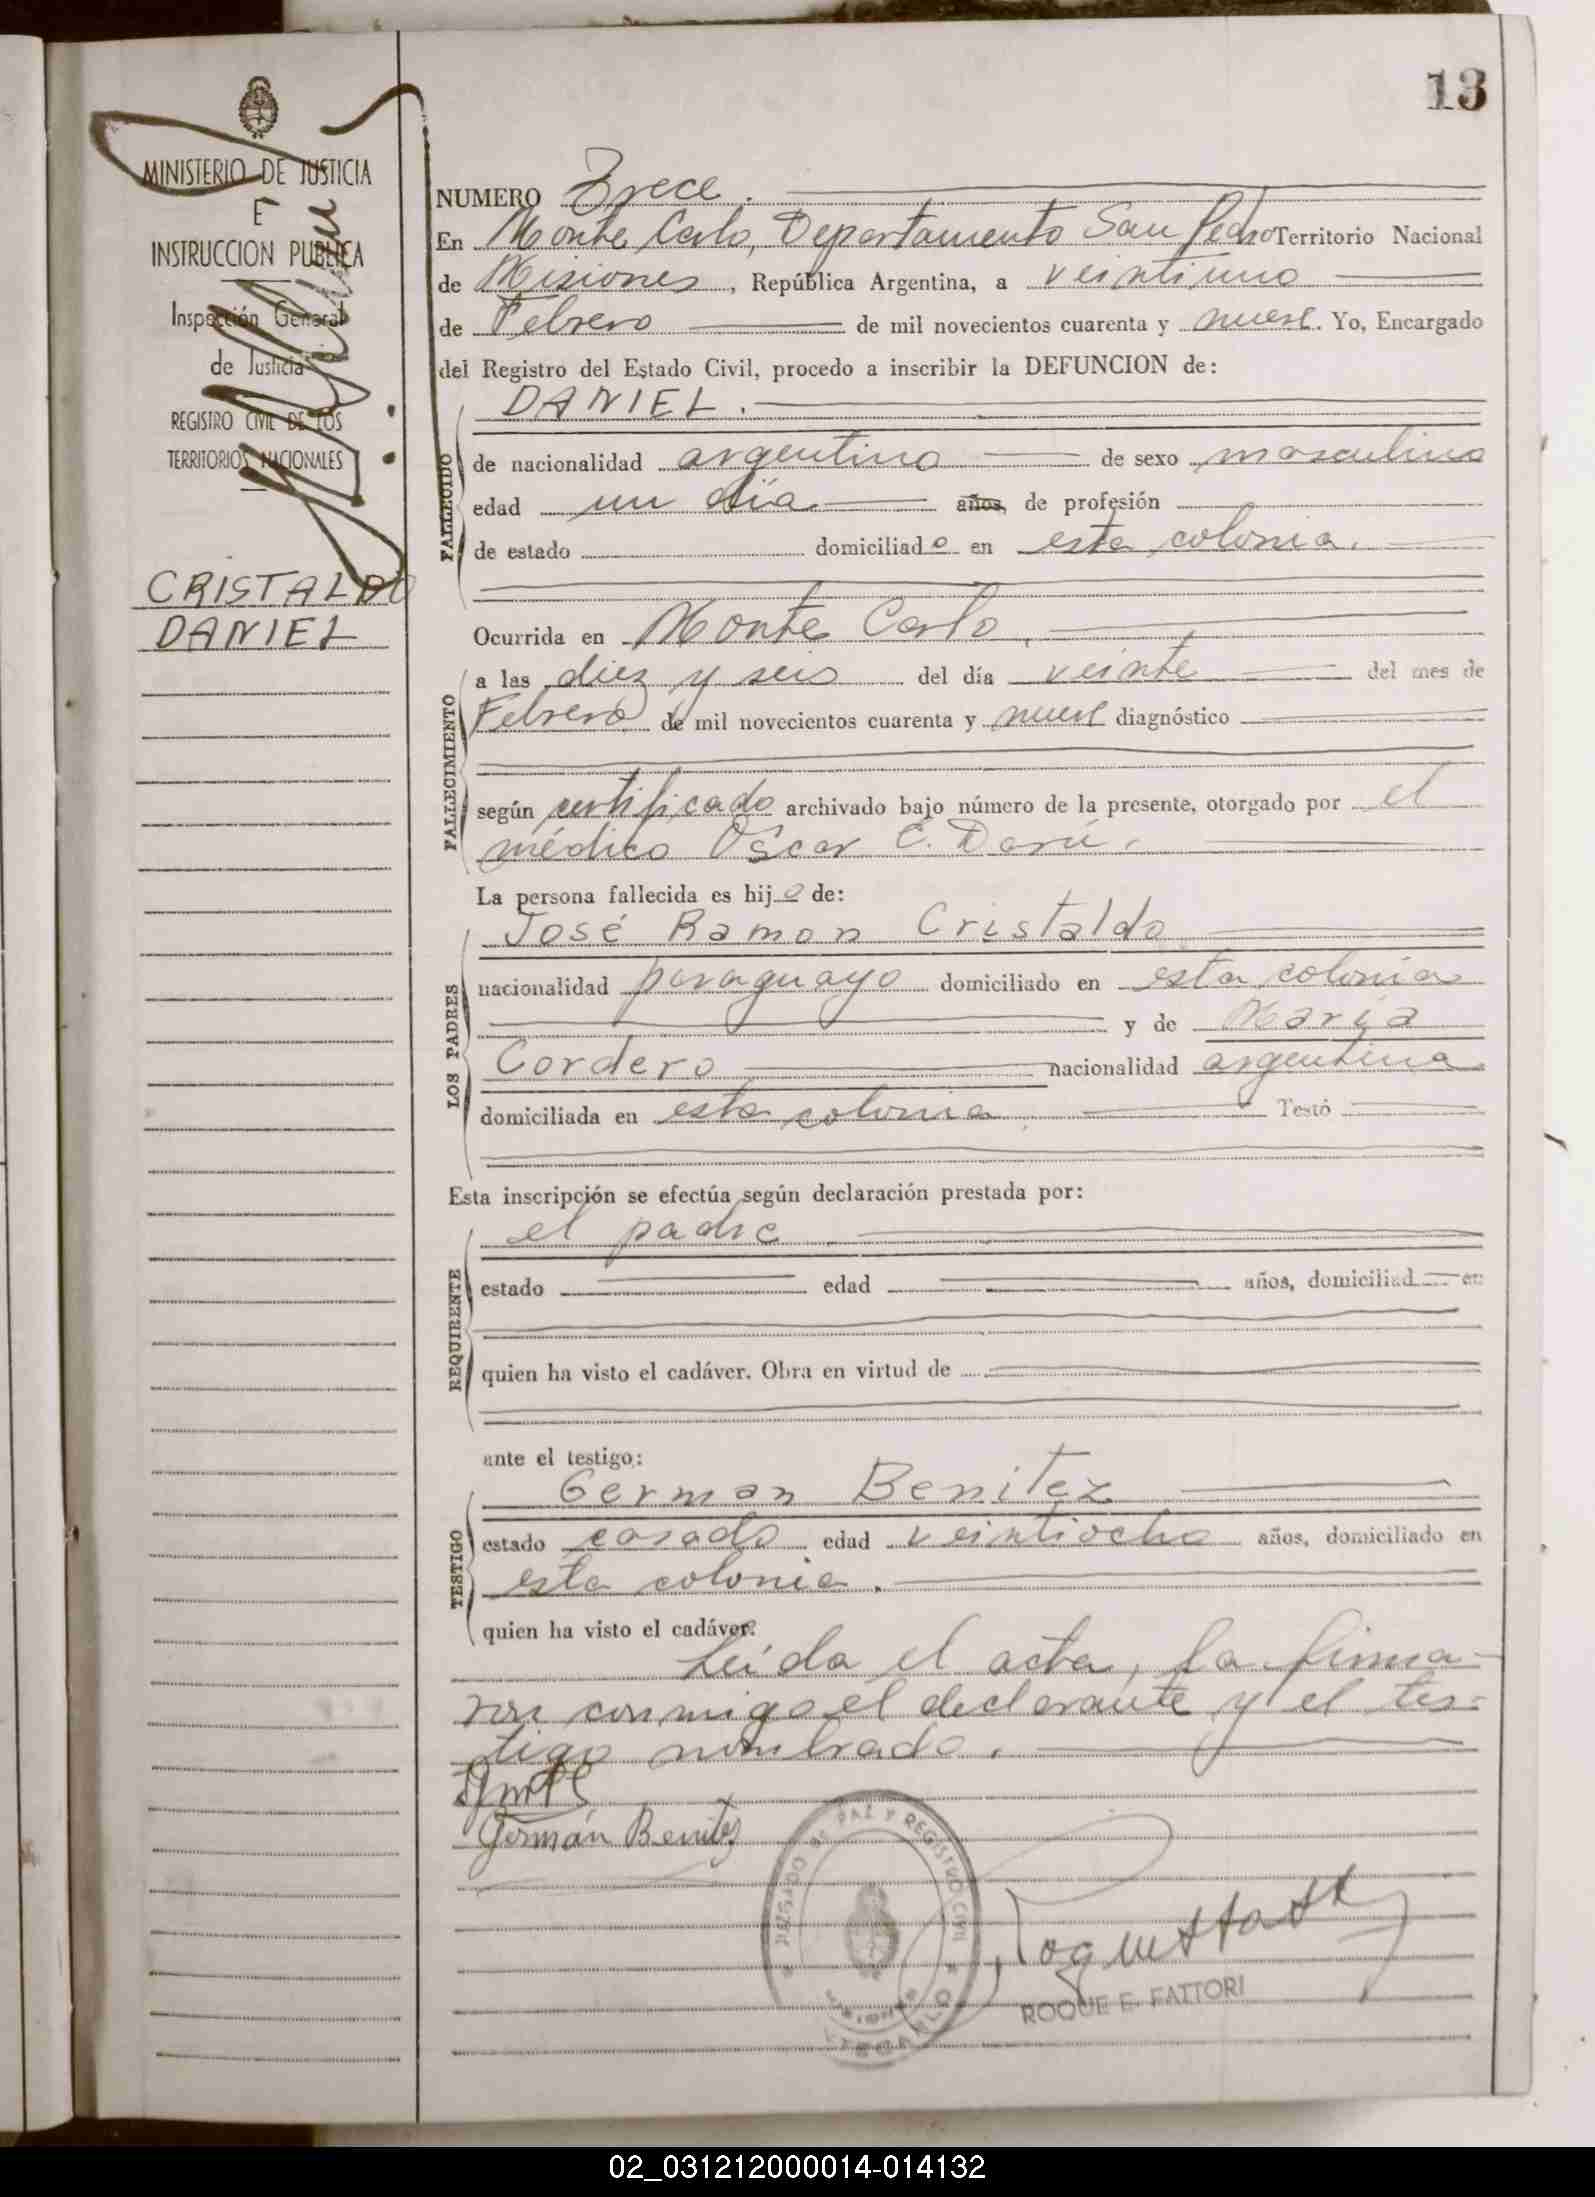 13
MINISTERIO DE JUSTICIA
E
INSTRUCCION PUBLICA
Inspección General
de Justicia
REGISTRO CIVIL DE LOS
TERRITORIOS NACIONALES
CRISTALDO
DANIEL
NUMERO Trece.
En Monte Carlo, Departamento San Pedro Territorio Nacional
de Misiones, República Argentina, a veintiuno
de Febrero de mil novecientos cuarenta y nueve. Yo, Encargado
del Registro del Estado Civil, procedo a inscribir la DEFUNCION de:
DANIEL.
FALLECIDO
de nacionalidad argentino de sexo masculino
edad un día años, de profesión
de estado domiciliado en esta colonia.
Ocurrida en Monte Carlo.
FALLECIMIENTO
a las diez y seis del día veinte del mes de
Febrero de mil novecientos cuarenta y nueve diagnóstico
según certificado archivado bajo número de la presente, otorgado por el
médico Oscar C. Darú.
La persona fallecida es hijo de:
LOS PADRES
José Ramon Cristaldo
nacionalidad paraguayo domiciliado en esta colonia
y de María
Cordero nacionalidad argentina
domiciliada en esta colonia. Testó
Esta inscripción se efectúa según declaración prestada por:
REQUIRENTE
el padre
estado edad años, domiciliad en
quien ha visto el cadáver. Obra en virtud de
ante el testigo:
TESTIGO
German Benitez
estado casado edad veintiocho años, domiciliado en
esta colonia.
quien ha visto el cadáver.
Leída el acta, la firma-
ron conmigo el declarante y el tes-
tigo nombrado.
Germán Benitez
JUZGADO DE PAZ Y REGISTRO CIVIL
MISIONES
MONTECARLO
ROQUE E. FATTORI
02_031212000014-014132